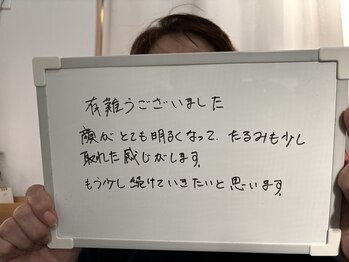 有難うございました
顔がとても明るくなって、たるみも少し
取れた感じがします。
もう少し続けていきたいと思います。